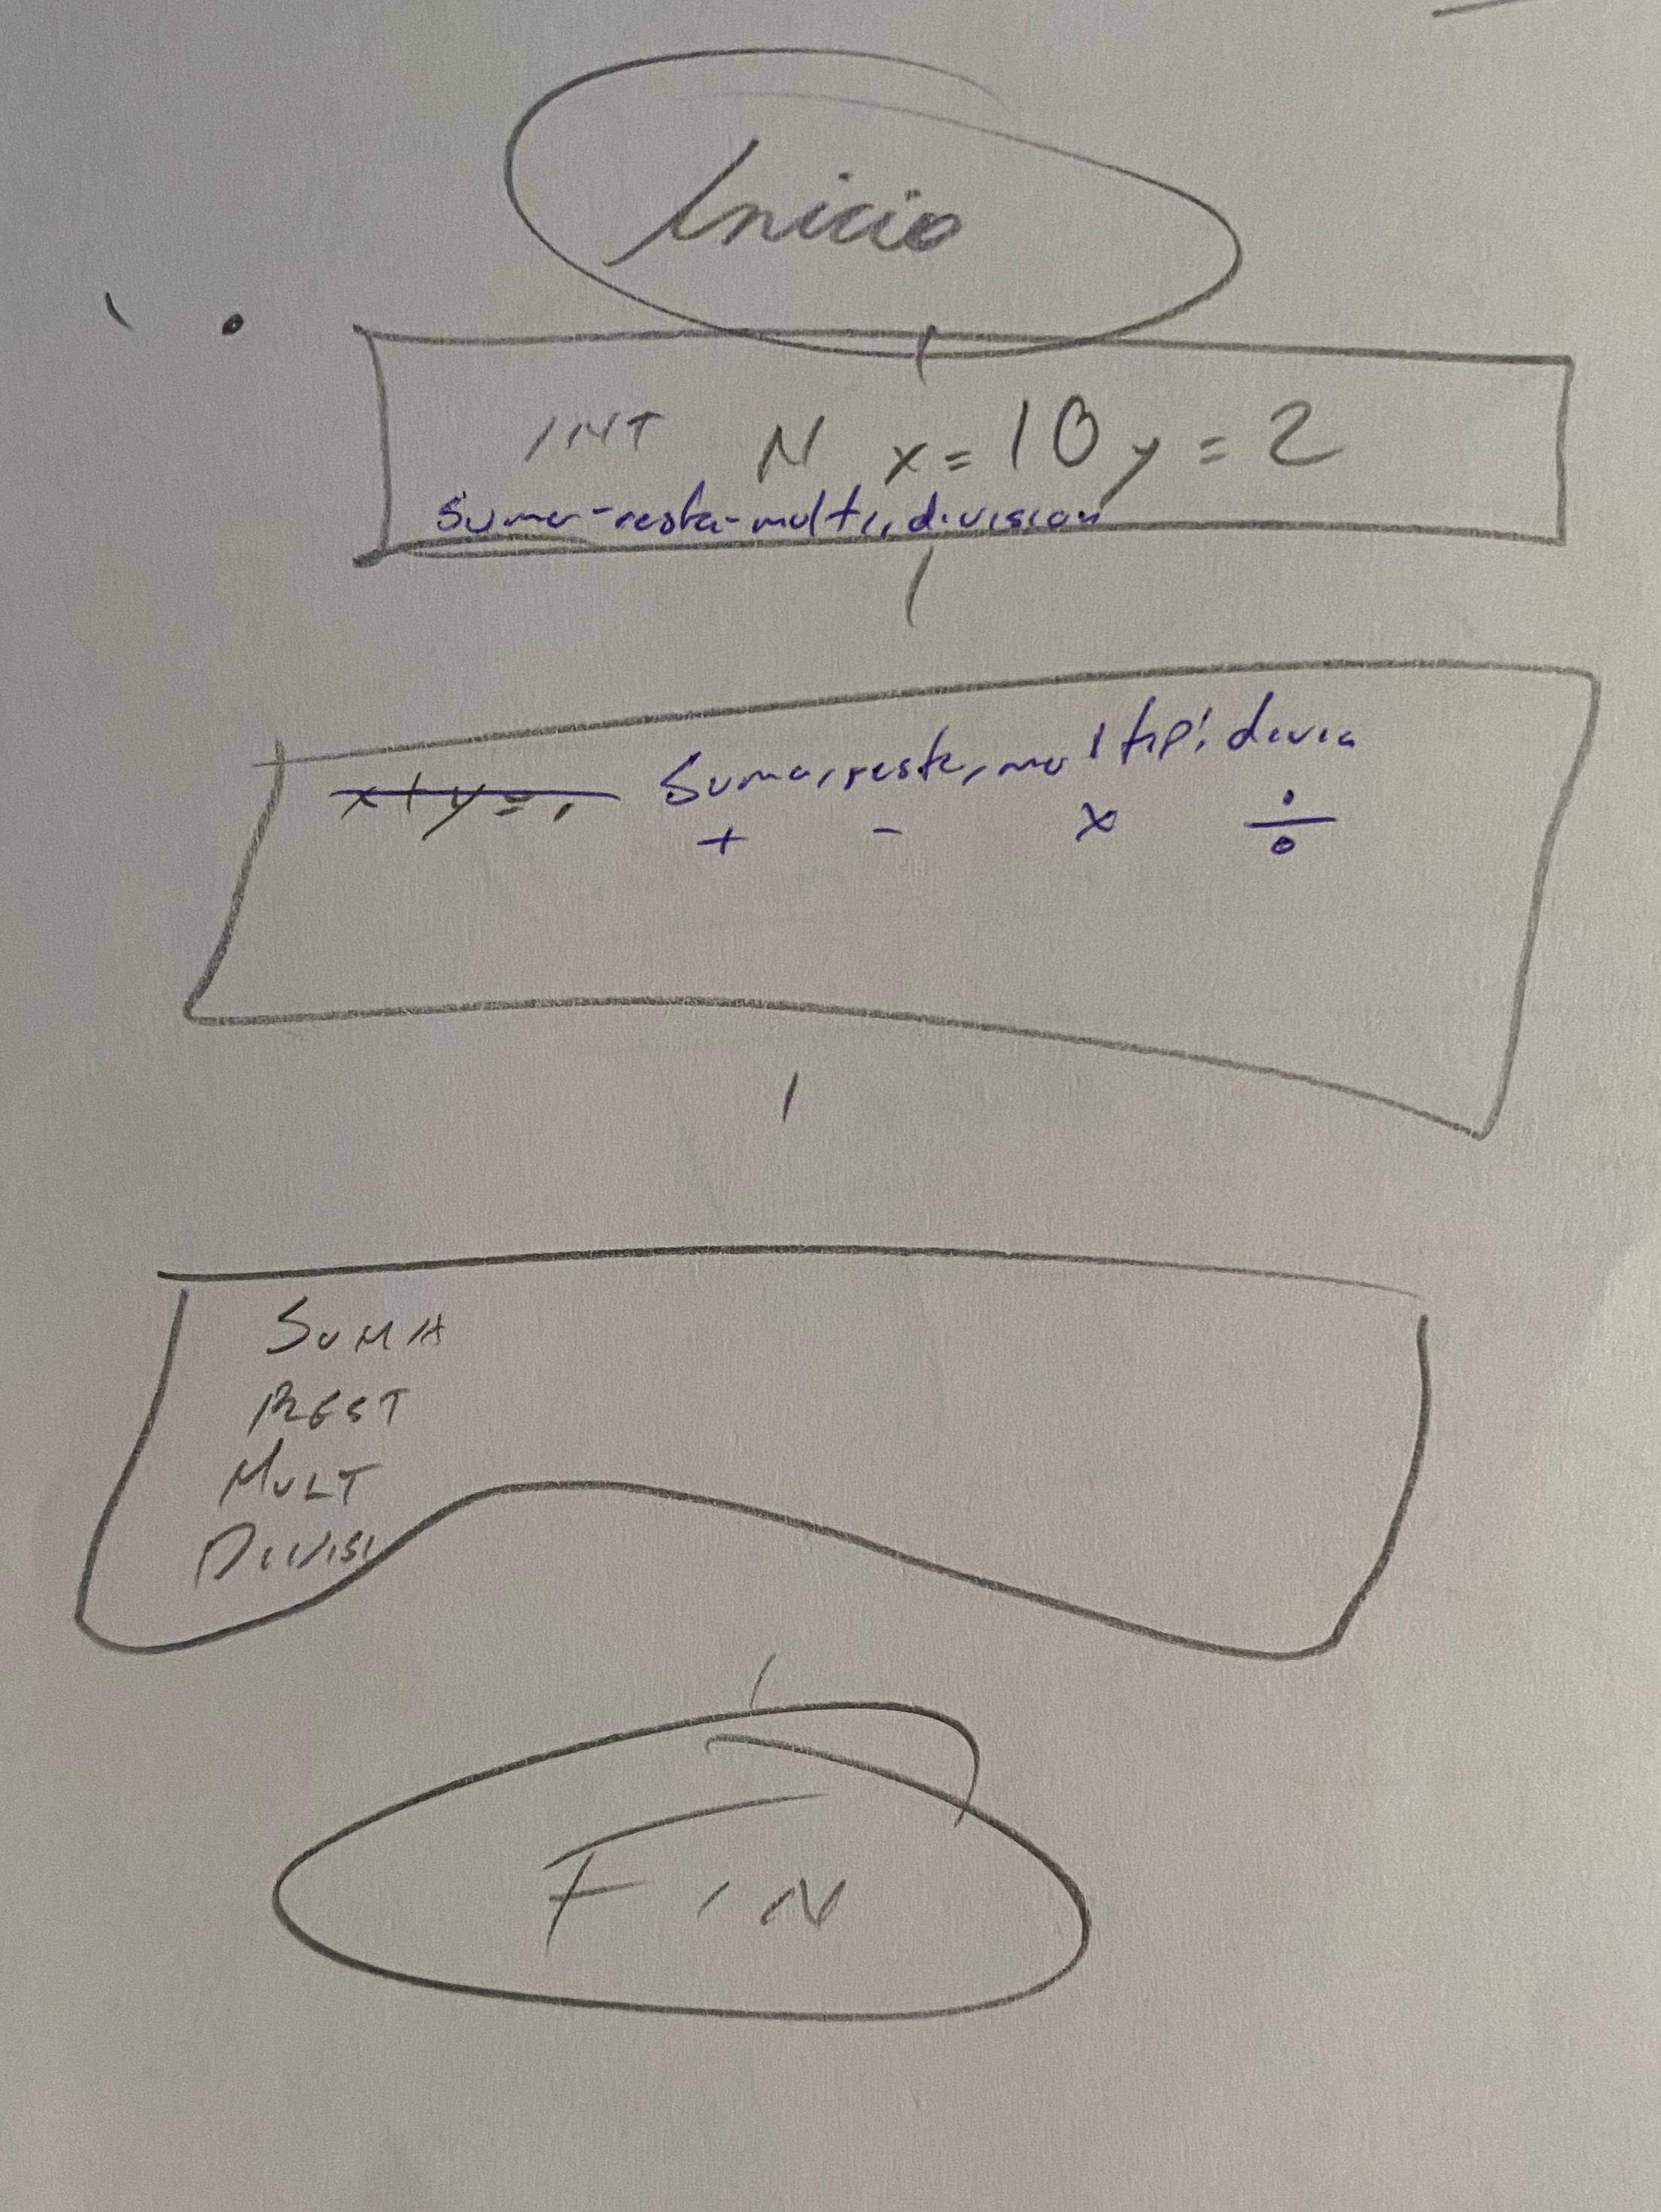 Inicio
INT N x=10 y=2
Suma-resta-multi, division
x+y=, Suma, resta, multip! divia
+ - x ÷
SUMA
REST
MULT
DIVISI
FIN